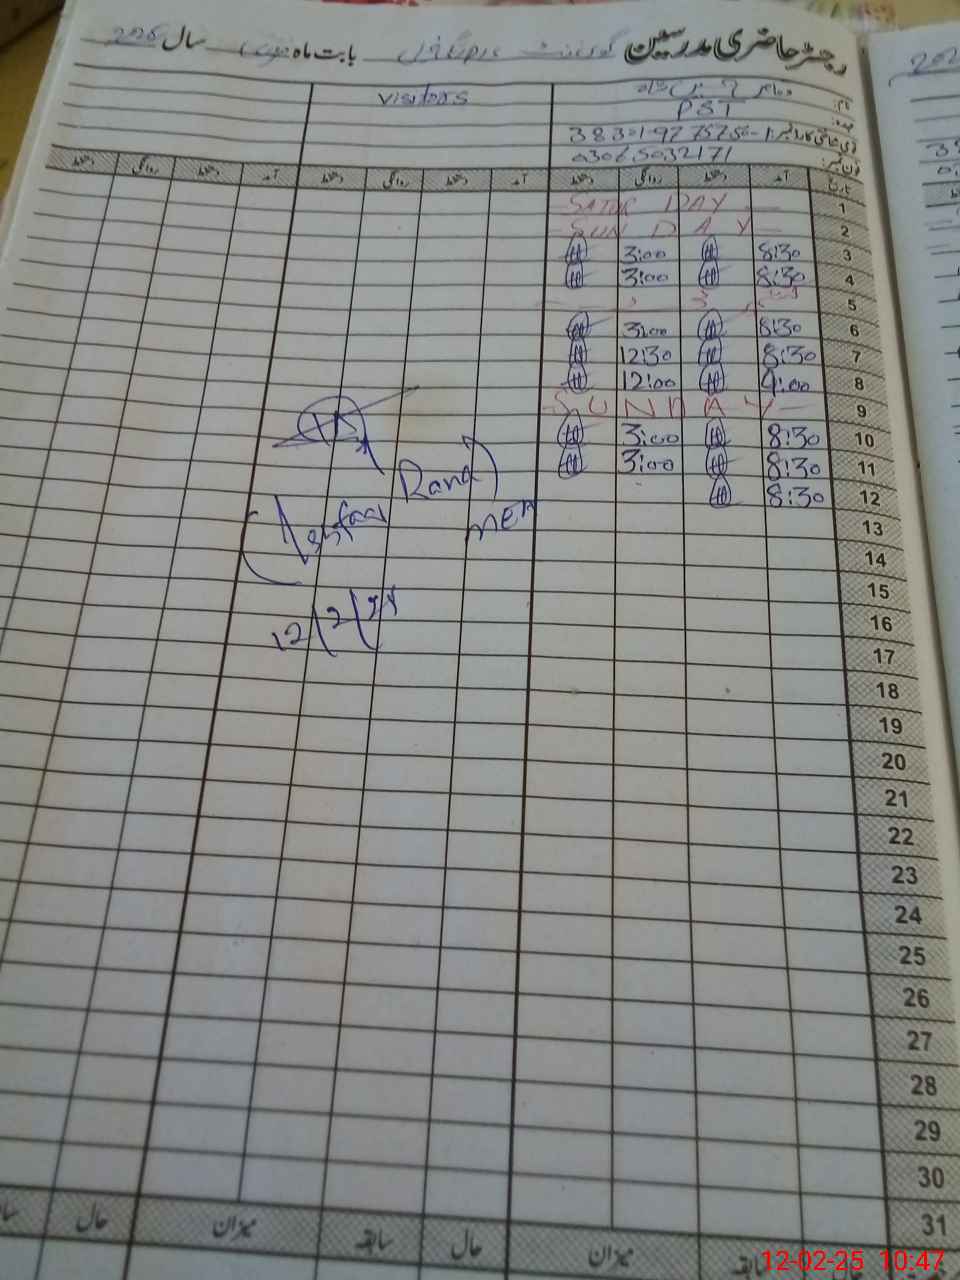 رجسٹر حاضری مدرسین گورنمنٹ بابت ماہ فروری سال 2025
نام:
عہدہ: PST
visitors
قومی شناختی کارڈ نمبر:
فون نمبر: 03065032171
تاریخ آمد دستخط روانگی دستخط آمد دستخط روانگی دستخط آمد دستخط روانگی دستخط
1 SATUR DAY
2 SUN DAY
3 8:30 3:00
4 8:30 3:00
5
6 8:30 3:00
7 8:30 12:30
8 9:00 12:00
9 SUNDAY
10 8:30 3:00
11 8:30 3:00
12 8:30
13
14
15
16
17
18
19
20
21
22
23
24
25
26
27
28
29
30
31
(Ishfaq Rana)
MEA
سابقہ میزان حال سابقہ میزان حال
12-02-25 10:47